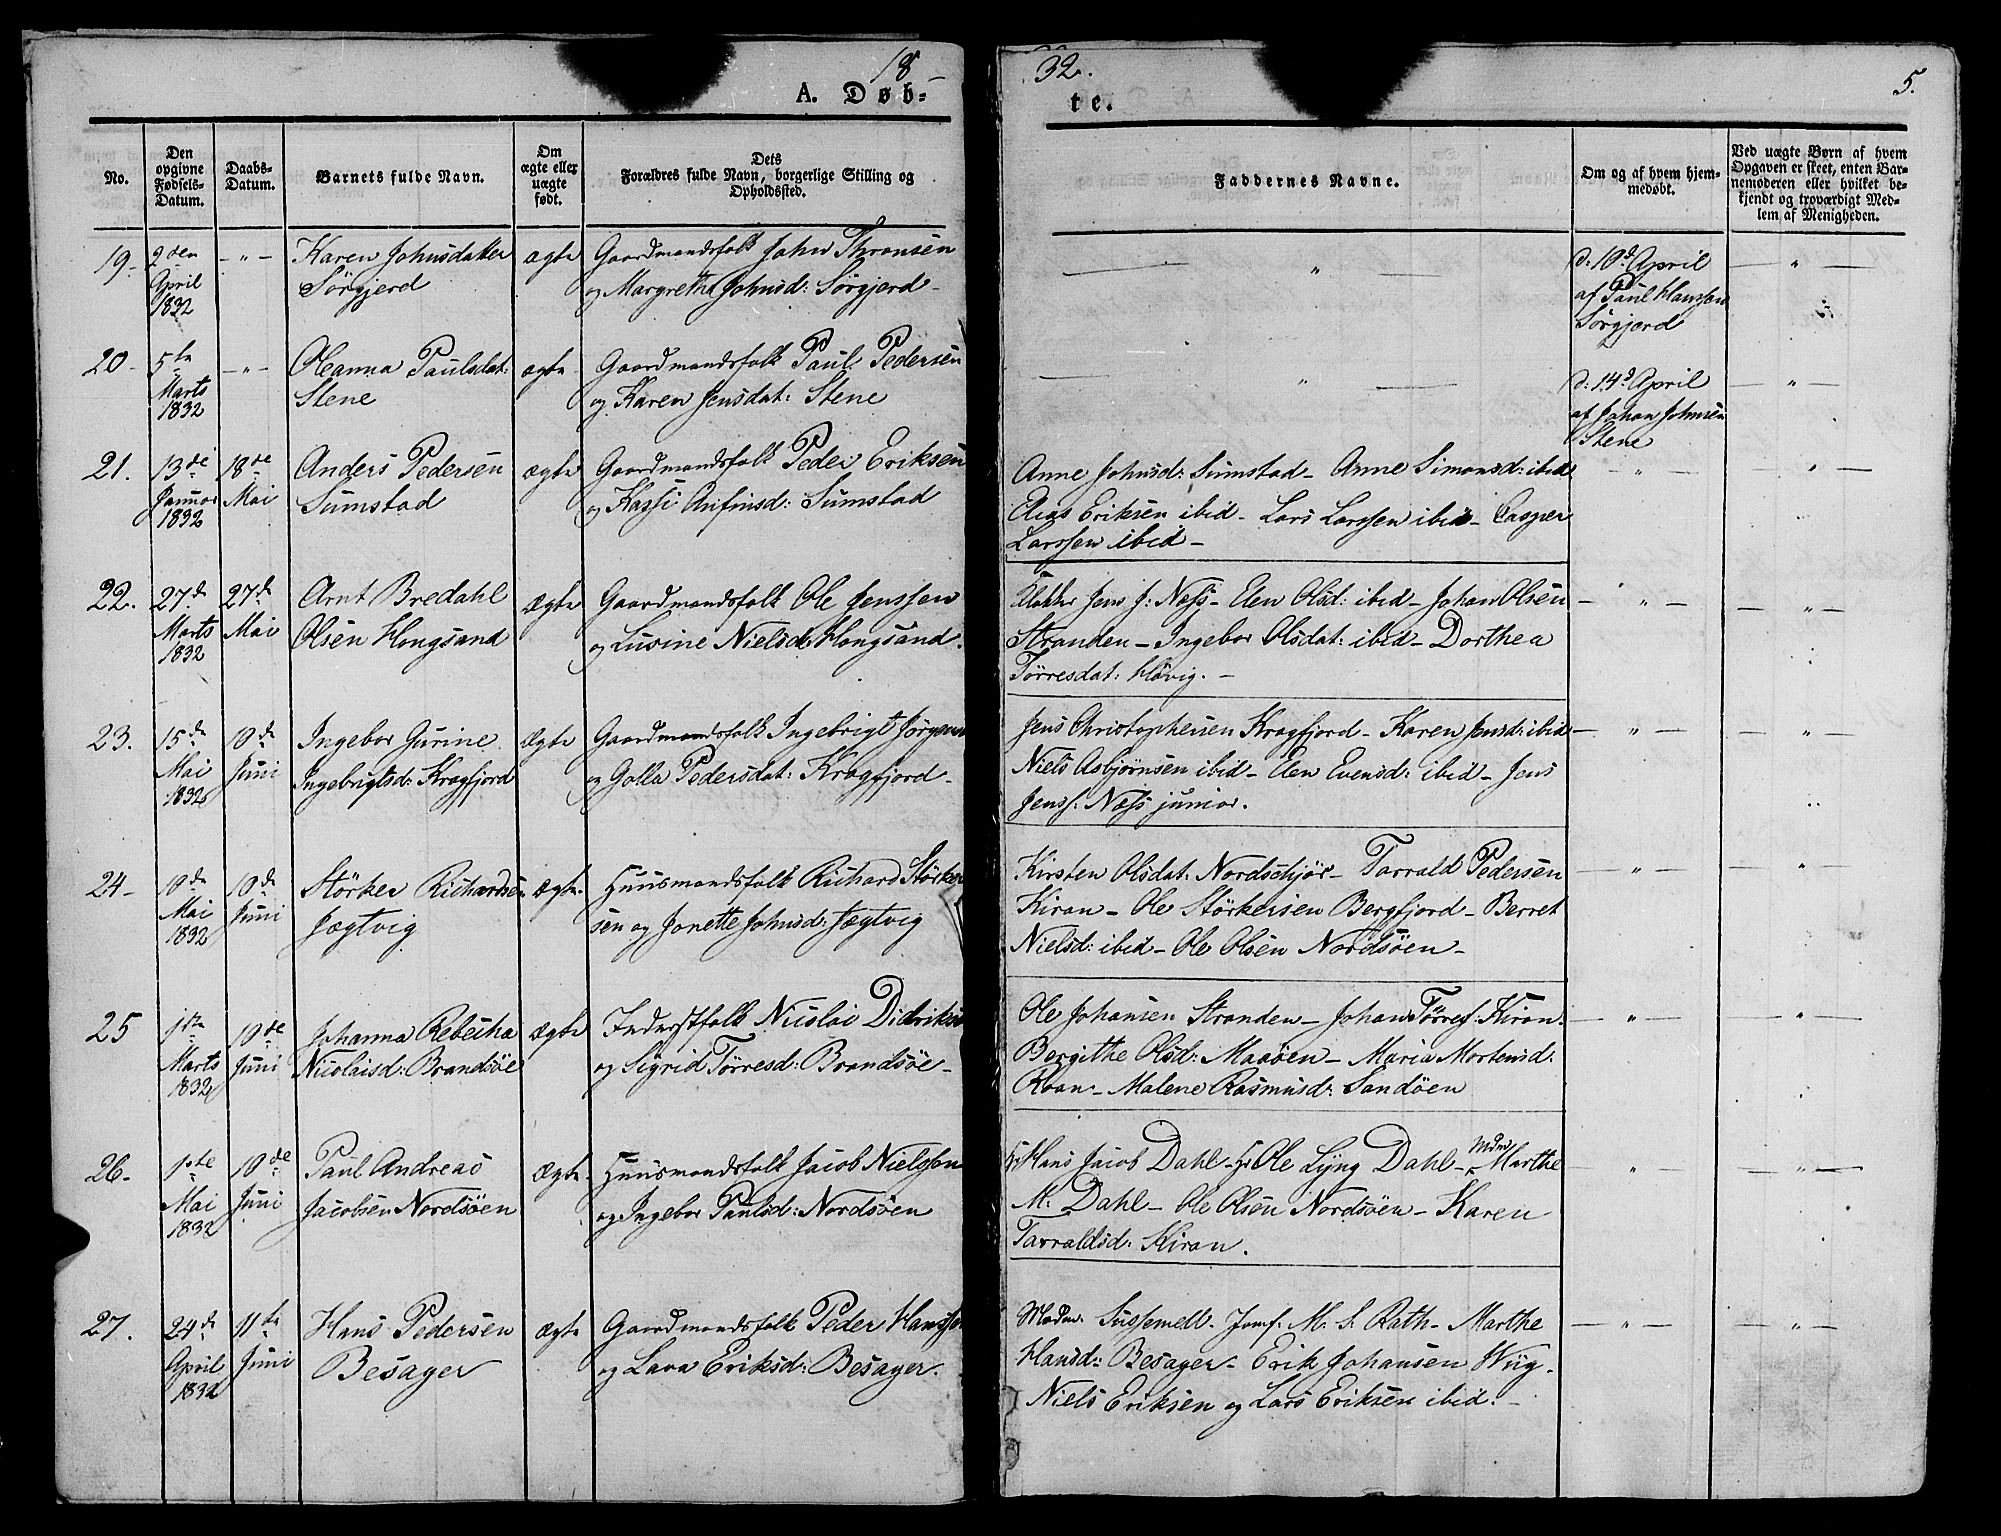 18
32.
5.
A. Døb-
te.
No.
Den
opgivne
Fødsels-
Datum.
Daabs-
Datum.
Barnets fulde Navn.
Om
ægte eller
uægte
født.
Dets
Forældres fulde Navn, borgerlige Stilling og
Opholdssted.
Faddernes Navne.
Om og af hvem hjem-
medøbt.
Ved uægte Børn af hvem
Opgaven er skeet, enten Bar-
nemoderen eller hvilket be-
kjendt og troværdigt Med-
lem af Menigheden.
19.
2den
April
1832
- " -
Karen Johnsdatter
Sörgjerd
ægte
Gaardmandsfolk John Thronsen
og Margretha Johnsd: Sörgjerd-
— " —
d: 10d April
af Paul Hanssen
Sörgjerd
— " —
20-
5te
Marts
1832
- " -
Oleanna Paulsdat:
Stene
ægte
Gaardmandsfolk Paul Pedersen
og Karen Jensdat: Stene
— " —
d: 14d April
af Johan Johnsen
Stene
— " —
21.
13de
Januar
1832
18de
Mai
Anders Pedersen
Sumstad
ægte
Gaardmandsfolk Peder Eriksen
og Kassi Anfinsd: Sumstad
Anne Johnsd: Sumstad- Anne Simonsd: ibid
Elias Eriksen ibid- Lars Larssen ibid- Casper
Larssen ibid-
- " -
— " —
22.
27d
Marts
1832
27d
Mai
Arnt Bredahl
Olsen Hongsand
Ægte
Gaardmandsfolk Ole Jenssen
og Lusine Nielsd: Hongsand.
Klokker Jens J: Næss- Elen Olsd: ibid- Johan Olsen
Stranden- Ingebor Olsdat: ibid- Dorthea
Törresdat: Hövig. -
— " —
— " —
23.
15de
Mai
1832
10de
Juni
Ingebor Gurine
Ingebrigtsd: Kragfjord
Ægte
Gaardmandsfolk Ingebrigt Jörgensen
og Golla Pedersdat: Kragfjord-
Jens Christophersen Kragfjord- Karen Jensd: ibid
Niels Asbjörnsen ibid- Elen Evensd: ibid- Jens
Jenss: Næss junior.
— " —
— " —
24-
10de
Mai
1832
10de
Juni
Störker Richardsen
Jægtvig
Ægte.
Huusmandsfolk Richard Störker
sen og Jonette Johnsd: Jægtvig
Kirsten Olsdat: Nordschjör- Tarrald Pedersen
Kiran- Ole Störkersen Bergfjord- Berret
Nielsd: ibid- Ole Olsen Nordsöen-
— " —
— " —
25
1ste
Marts
1832
10de
Juni
Johanna Rebecha
Nicolaisd: Brandsöe
Ægte
Inderstfolk Nicolai Didriksen
og Sigrid Törresd: Brandsöe-
Ole Johansen Stranden- Johan Törres: Kiran.
Bergithe Olsd: Maaöen- Maria Mortensd:
Roan- Malene Rasmusd: Sandöen
— " —
— " —
26-
1ste
Mai
1832
10de
Juni
Paul Andreas
Jacobsen Nordsöen
Ægte.
Huusmandsfolk Jacob Nielssen
og Ingebor Paulsd: Nordsöen
Hr Hans Jacob Dahl- Hr Ole Lyng Dahl- Mdm Marthe
M: Dahl- Ole Olsen Nordsöen- Karen
Tarraldsd: Kiran.
"
— " —
27.
24de
April
1832
11te
Juni
Hans Pedersen
Besager
ægte
Gaardmandsfolk Peder Hanssen
og Lava Eriksd: Besager.
Madm: Sussemell- Jomf: M. S. Rath- Marthe
Hansd: Besager- Erik Johansen Wiig-
Niels Eriksen og Lars Eriksen ibid.-
— " —
— " —